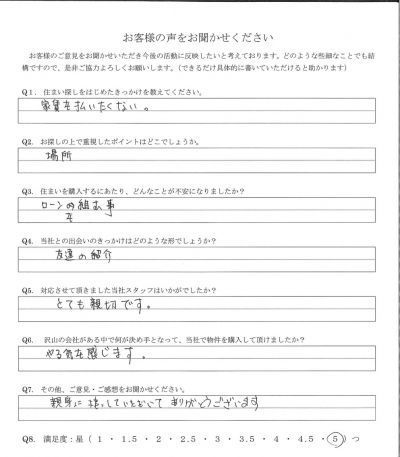 お客様の声をお聞かせください
お客様のご意見をお聞かせいただき今後の活動に反映したいと考えております。どのような些細なことでも結
構ですので、是非ご協力よろしくお願いします。（できるだけ具体的に書いていただけると助かります）
Q1． 住まい探しをはじめたきっかけを教えてください。
家賃を払いたくない。
Q2． お探しの上で重視したポイントはどこでしょうか。
場所
Q3． 住まいを購入するにあたり、どんなことが不安になりましたか？
ローンを組む事
Q4． 当社との出会いのきっかけはどのような形でしょうか？
友達の紹介
Q5． 対応させて頂きました当社スタッフはいかがでしたか？
とても親切です。
Q6． 沢山の会社がある中で何が決め手となって、当社で物件を購入して頂けましたか？
やる気を感じます。
Q7． その他、ご意見・ご感想をお聞かせください。
親身に していただいて ありがとうございます
Q8． 満足度：星（ 1 ・ 1.5 ・ 2 ・ 2.5 ・ 3 ・ 3.5 ・ 4 ・ 4.5 ・ 5 ）つ